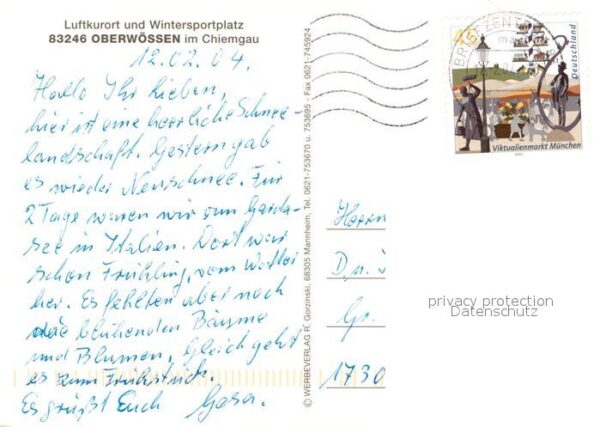 Luftkurort und Wintersportplatz
83246 OBERWÖSSEN im Chiemgau
12.02.04.
Hallo Ihr Lieben,
hier ist eine herrliche Schnee
landschaft. Gestern gab
es wieder Neuschnee. Für
2 Tage waren wir am Garda-
see in Italien. Dort war
schon Frühling, vom Wetter
her. Es fehlten aber noch
die blühenden Bäume
und Blumen. Gleich geht
es zum Frühstück.
Es grüßt Euch
© WERBEVERLAG R. Gorzinski, 68305 Mannheim, Tel. 0621-753670 u. 753695 · Fax 0621-745924
BRIEFZENTRUM
Deutschland
Viktualienmarkt München
Herrn
D. u. J
Gr.
1730
privacy protection
Datenschutz